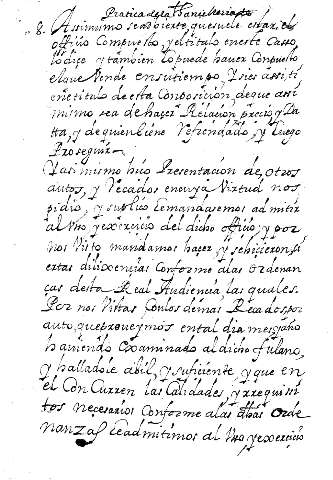 Practica de la Chancilleria
8. Assimismo se advierte, que suele estar, el
offiçio Compuesto, y el titulo en este Casso
lo dice, y tambien lo puede haver Conpuesto
el que Vende en su tiempo, Y si es assi, ti
ene titulo de esta Conposiçion, de que assi
mismo sea de haçer Relaçion, preçio, y Da
tta, y de quien biene Refrendado, y luego
Proseguir
Y assi mismo hiço Presentaçion de otros
autos, y Recados en cuya Virtud nos
pidio, y suplico le mandassemos admitir
al Vso, y exerçiçio del dicho offiçio, y por
nos Visto mandamos haçer, y se hiçieron, çi
ertas dilixençias Conforme a las Ordenan
ças desta Real Audiençia las quales.
Por nos Vistas Con los demas Recados, por
auto, que proveymos en tal dia mes, y año
haviendo examinado al dicho fulano,
y halladole abil, y sufiçiente, y que en
el Con Curren las Calidades, y rrequissi
tos neçesarios Conforme a las dhas Orde
nanzas le admitimos al Vso, y exerçiçio